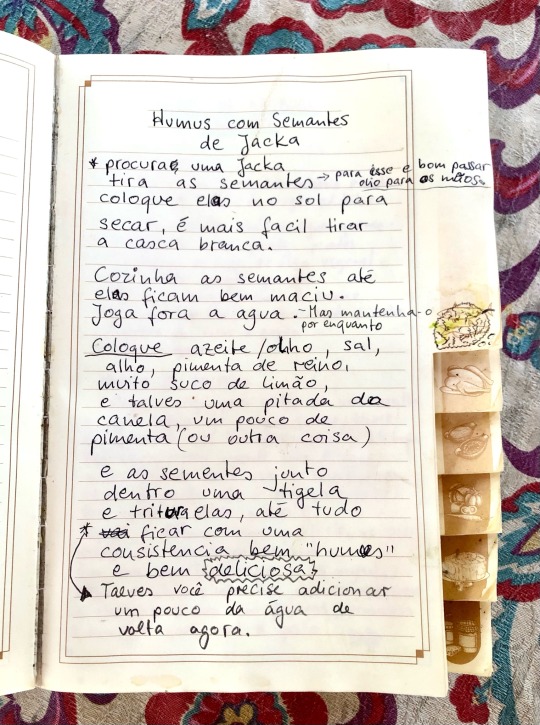 Humus com Semantes
de Jacka
* procurae uma Jacka
tira as semantes → para isse e bom passar
olio para os mãos.
coloque elas no sol para
secar, é mais facil tirar
a casca branca.
Cozinha as semantes até
elas ficam bem maciu.
Joga fora a agua. - Mas mantenha-o
por enquanto
Coloque azeite/olho, sal,
alho, pimenta de reino,
muito suco de limão,
e talves uma pitada da
canela, um pouco de
pimenta (ou outra coisa)
e as sementes junto
dentro uma tigela
e trituraelas, até tudo
* ficar com uma
consistencia bem "humus"
e bem deliciosa
Taeves você precise adicionar
um pouco da água de
volta agora.